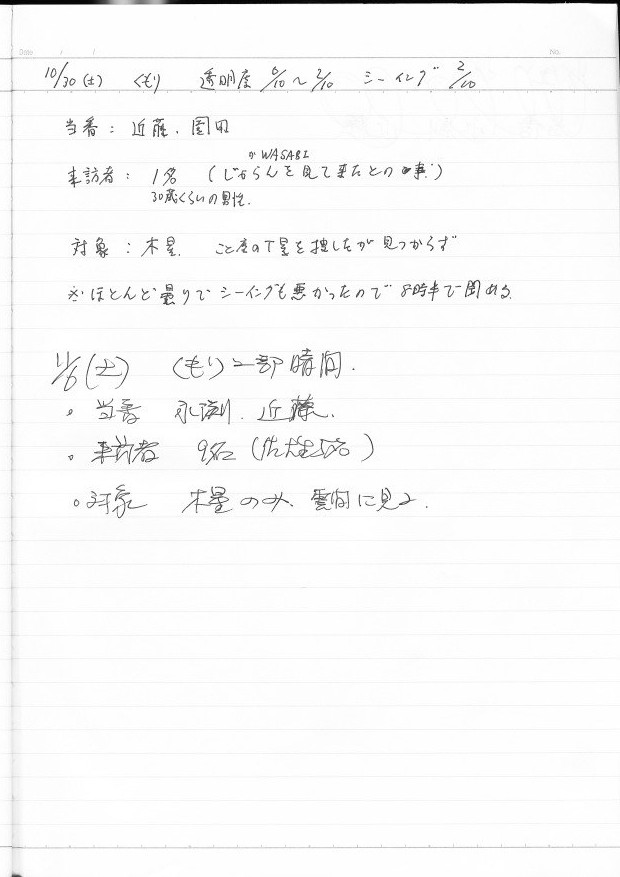 Date / / No.
10/30(土) くもり 透明度 0/10〜2/10 シーイング 2/10
当番: 近藤、園田
か WASABI
来訪者: 1名 (じゃらんを見て来たとの事)
30歳くらいの男性.
対象: 木星. こと座のT星を捜したが見つからず
※ ほとんど曇りで シーイングも悪かったので 8時半で閉める.
11/6(土) くもり 一部晴間.
。当番 近藤.
。来訪者 9名
。対象 木星のみ、雲間に見る.